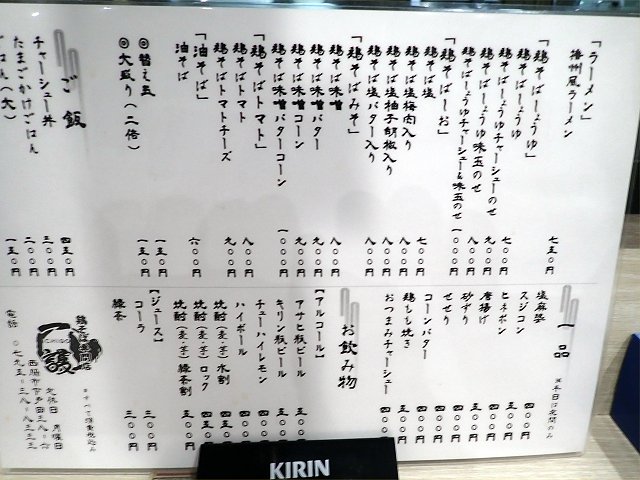 「ラーメン」
播州風ラーメン 七五〇円
「鶏そばしょうゆ」
鶏そばしょうゆ 七〇〇円
鶏そばしょうゆチャーシューのせ 九〇〇円
鶏そばしょうゆ味玉のせ 八〇〇円
鶏そばしょうゆチャーシュー&味玉のせ 一〇〇〇円
「鶏そばしお」
鶏そば塩 七〇〇円
鶏そば塩梅肉入り 八〇〇円
鶏そば塩柚子胡椒入り 八〇〇円
鶏そば塩バター入り 八〇〇円
「鶏そばみそ」
鶏そば味噌 八〇〇円
鶏そば味噌バター 九〇〇円
鶏そば味噌コーン 九〇〇円
鶏そば味噌バターコーン 一〇〇〇円
「鶏そばトマト」
鶏そばトマト 八〇〇円
鶏そばトマトチーズ 九〇〇円
「油そば」
油そば 六〇〇円
◎替え玉 一五〇円
◎大盛り(二倍) 一五〇円
ご飯
チャーシュー丼 四五〇円
たまごかけごはん 三〇〇円
二〇〇円
ごはん(大) 一五〇円
一品
※平日は夜間のみ
塩麻婆 六〇〇円
スジコン 五〇〇円
ヒネポン 四〇〇円
唐揚げ 四〇〇円
砂ずり 四〇〇円
せせり 四〇〇円
コーンバター 四〇〇円
鶏もも焼き
おつまみチャーシュー 四〇〇
お飲み物
【アルコール】
アサヒ瓶ビール 五〇〇
キリン瓶ビール 五〇〇
チューハイレモン 四〇〇
ハイボール 四〇〇
焼酎(麦・芋)水割 四五〇
焼酎(麦・芋)ロック 四五〇
焼酎(麦・芋)緑茶割 五〇〇円
【ジュース】
コーラ 三〇〇円
緑茶 三〇〇円
※すべて消費税込み
鶏そば専門店
一護
ICHIGO
定休日 月曜日
西脇市下戸田三八-六
電話 〇七九五-三八-八三三三
KIRIN